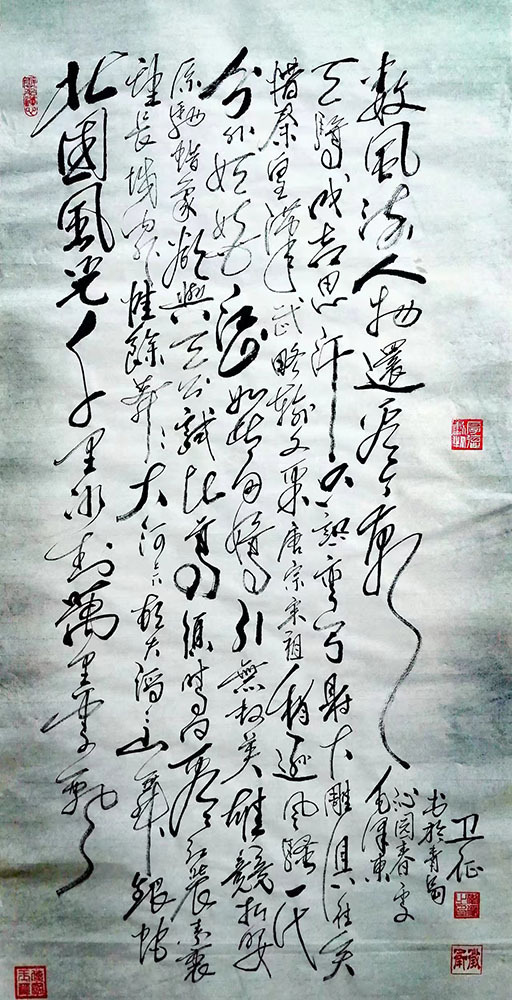 北國風光千里冰封萬里雪飄
望長城內外惟餘莽〻大河上下頓失滔〻山舞銀蛇
原馳蜡象欲與天公試比高須晴日看紅裝素裹
分外妖嬈江山如此多嬌引無數英雄競折腰
惜秦皇漢武略輸文采唐宗宋祖稍遜風騷一代
天驕成吉思汗只識彎弓射大雕俱往矣
數風流人物還看今朝
毛澤東
沁园春雪
书於青島
卫征